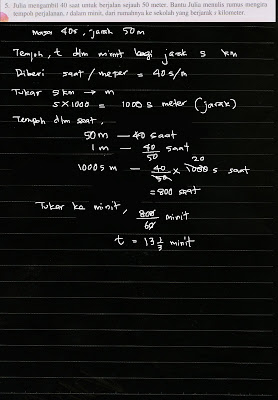 5. Julia mengambil 40 saat untuk berjalan sejauh 50 meter. Bantu Julia menulis rumus mengira
tempoh perjalanan, t dalam minit, dari rumahnya ke sekolah yang berjarak s kilometer.
Masa 40s, jarak 50m
Tempoh, t dlm minit bagi jarak s km
Diberi saat / meter = 40 s/m
Tukar s km → m
s × 1000 = 1000 s meter (jarak)
Tempoh dlm saat,
50m — 40 saat
1m — 40/50 saat
1000 s m — 40/50 × 1000 s saat
20
= 800 saat
Tukar ke minit, 800/60 minit
t = 13 1/3 minit